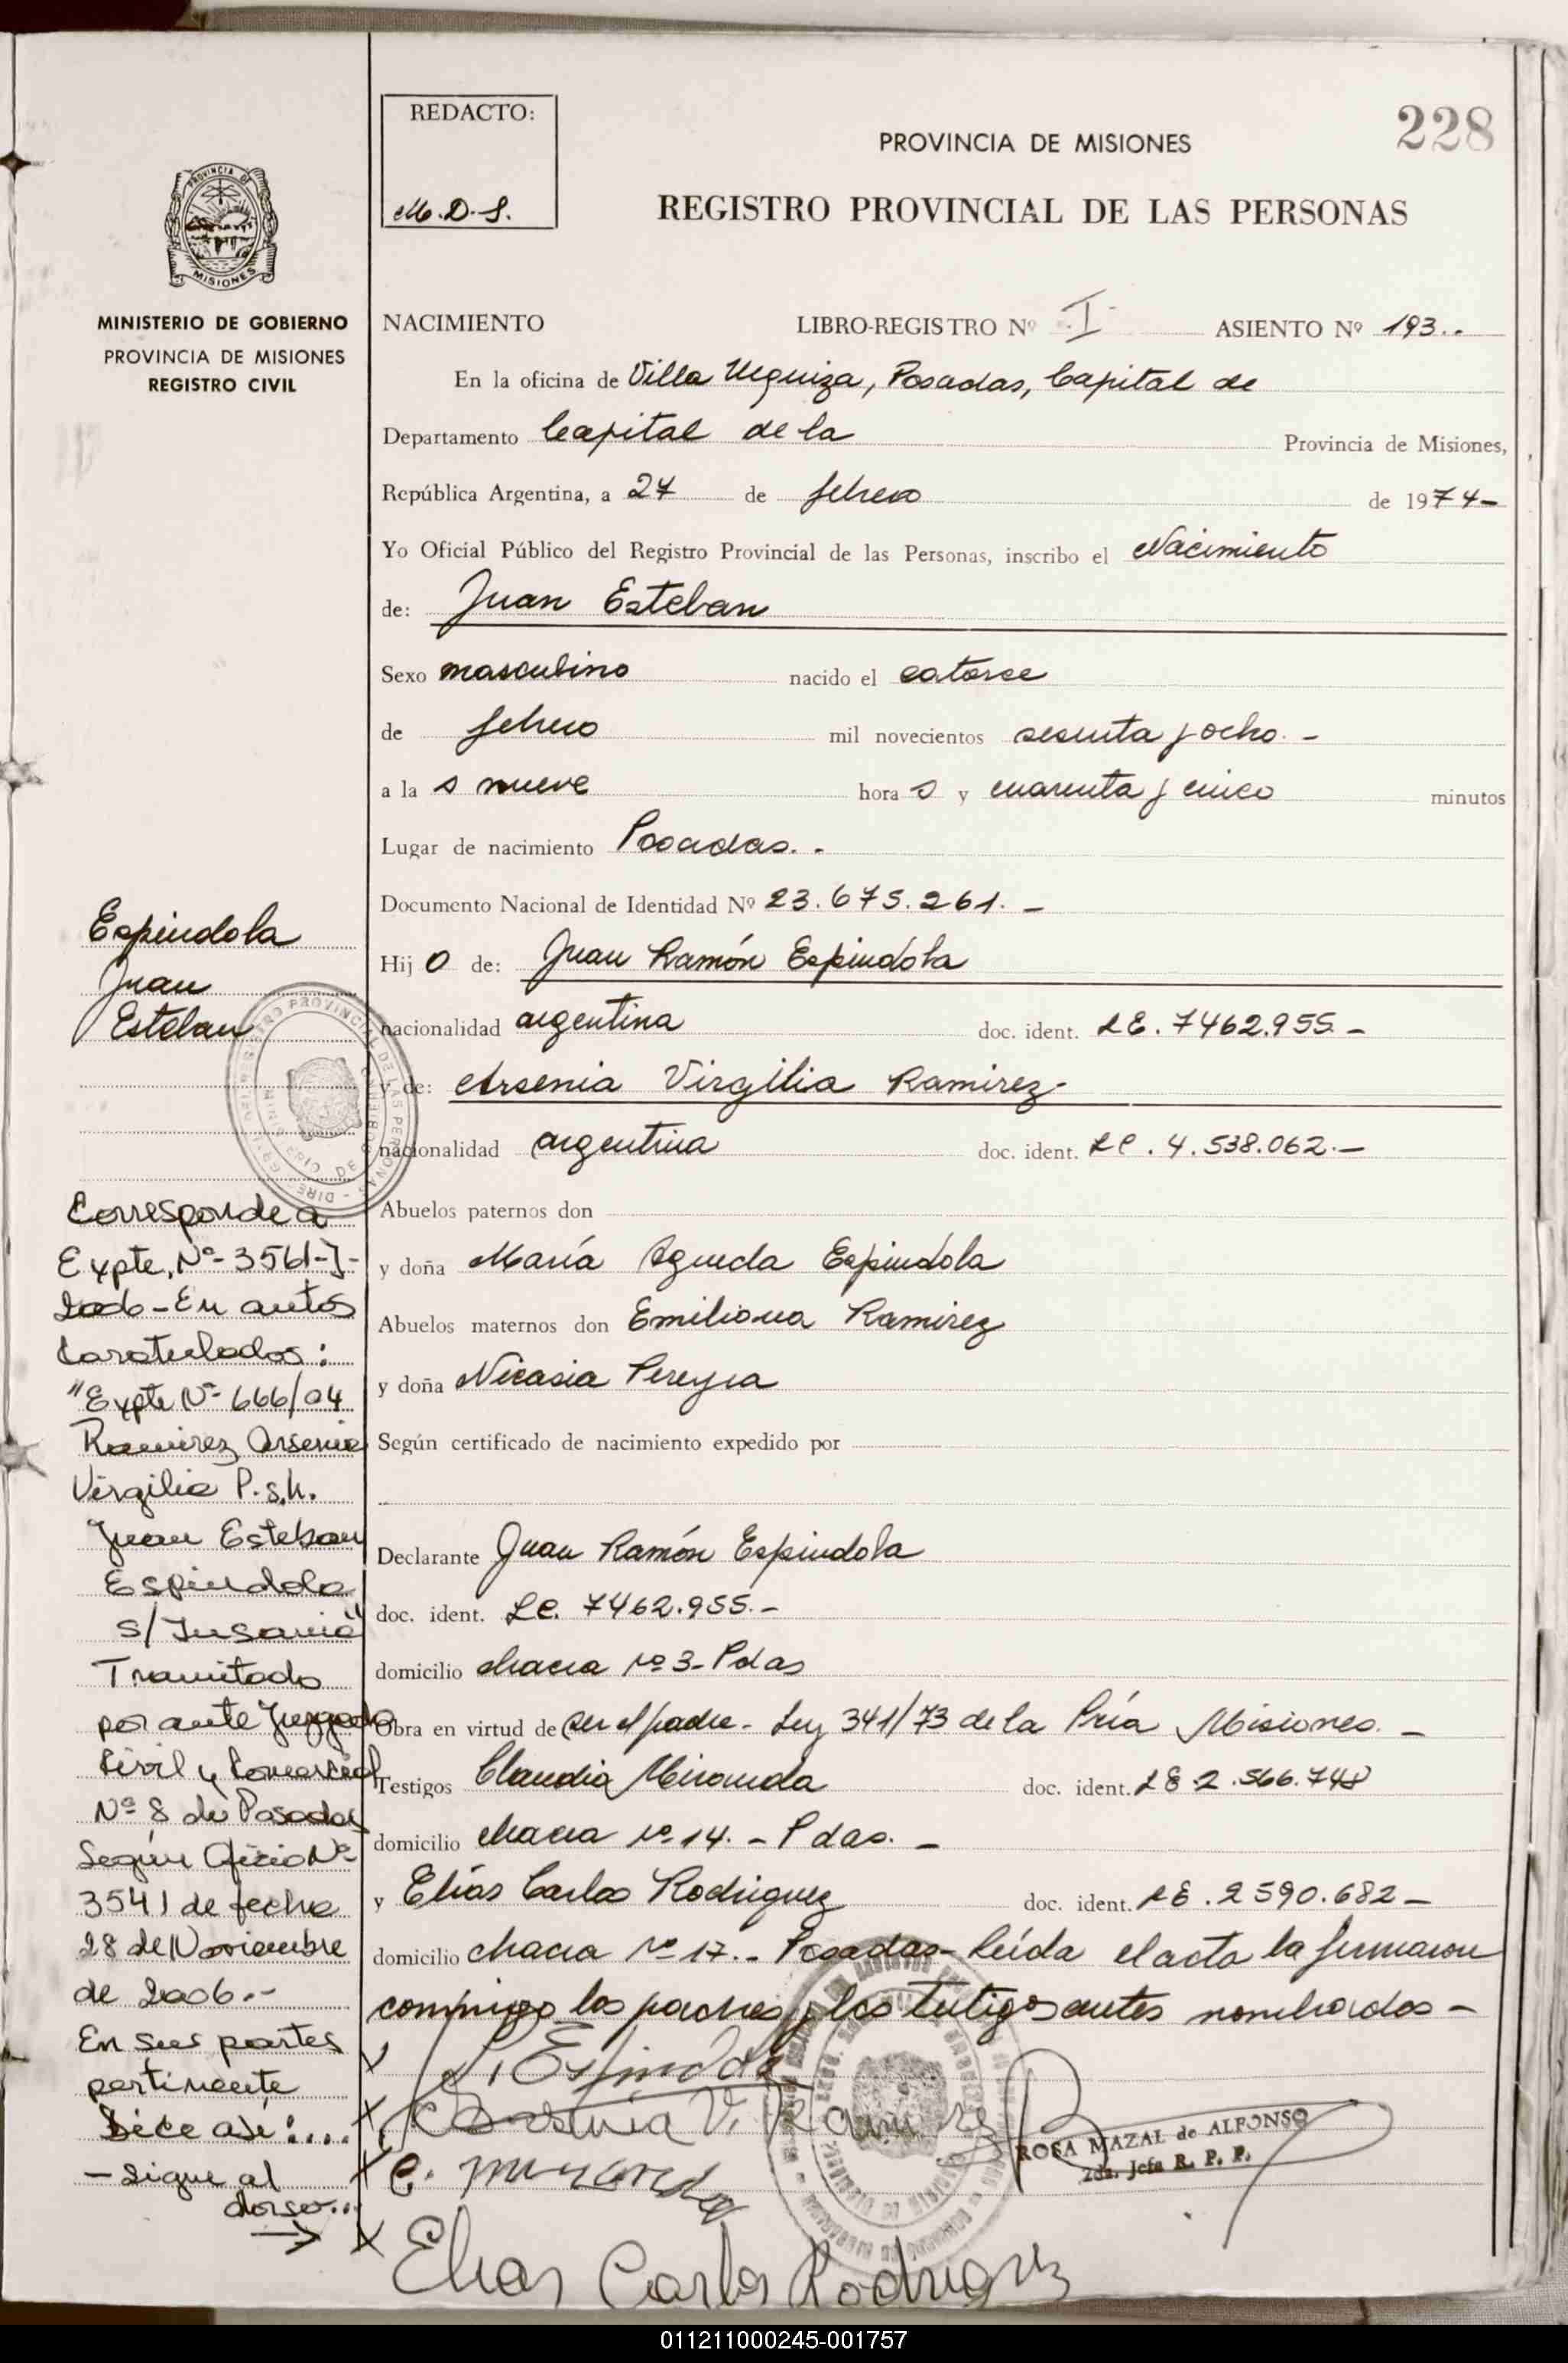 REDACTO:
M.D.S.
228
PROVINCIA DE MISIONES
REGISTRO PROVINCIAL DE LAS PERSONAS
PROVINCIA DE
MISIONES
MINISTERIO DE GOBIERNO
PROVINCIA DE MISIONES
REGISTRO CIVIL
NACIMIENTO LIBRO-REGISTRO Nº I ASIENTO Nº 193..
En la oficina de Villa Urquiza, Posadas, Capital de
Departamento Capital de la Provincia de Misiones,
República Argentina, a 27 de febrero de 1974-
Yo Oficial Público del Registro Provincial de las Personas, inscribo el Nacimiento
de: Juan Esteban
Sexo masculino nacido el catorce
de febrero mil novecientos sesenta y ocho. -
a la s nueve hora s y cuarenta y cinco minutos
Lugar de nacimiento Posadas. -
Documento Nacional de Identidad Nº 23.675.261. -
Hij o de: Juan Ramón Espíndola
nacionalidad argentina doc. ident. LE. 7462.955 -
y de: Arsenia Virgilia Ramirez-
nacionalidad argentina doc. ident. LC. 4.538.062.-
Abuelos paternos don
y doña María Agueda Espíndola
Abuelos maternos don Emiliana Ramirez
y doña Nicasia Pereyra
Según certificado de nacimiento expedido por
Declarante Juan Ramón Espíndola
doc. ident. LE. 7462.955.-
domicilio chacra Nº 3- Pdas
Obra en virtud de ser el padre - Ley 341/73 de la Pcía Misiones. -
Testigos Claudia Miranda doc. ident. LE 2.566.748
domicilio chacra Nº 14. - Pdas. -
y Elías Carlos Rodriguez doc. ident. LE. 2590.682-
domicilio chacra Nº 17.- Posadas- Leída el acta la firmaron
conmigo los padres y los testigos antes nombrados -
Espindola
V. Ramirez
C. Miranda
Elias Carlos Rodriguez
ROSA MAZAL de ALFONSO
2da. Jefa R. P. P.
Espíndola
Juan
Esteban
Corresponde a
Expte. Nº 3561-J-
2006 - En autos
Caratulados:
"Expte Nº 666/04
Ramirez Arsenia
Virgilia P.s.h.
Juan Esteban
Espindola
s/Insania"
Tramitado
por ante Juzgado
Civil y Comercial
Nº 8 de Posadas
Según Oficio Nº
3541 de fecha
28 de Noviembre
de 2006.-
En sus partes
pertinente
Dice así:....
- Sigue al
dorso...
011211000245-001757